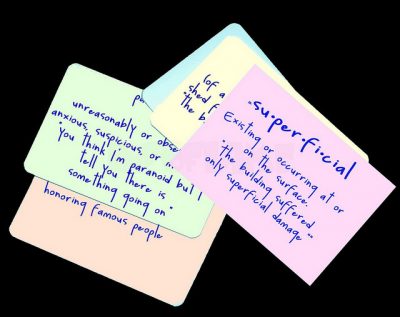 (of a
shed f
"the b
unreasonably or obse
anxious, suspicious, or
You think I'm paranoid but I
tell you there is
something going on"
honoring famous people
su·per·fi·cial
Existing or occurring at or
on the surface.
"the building suffered
only superficial damage"